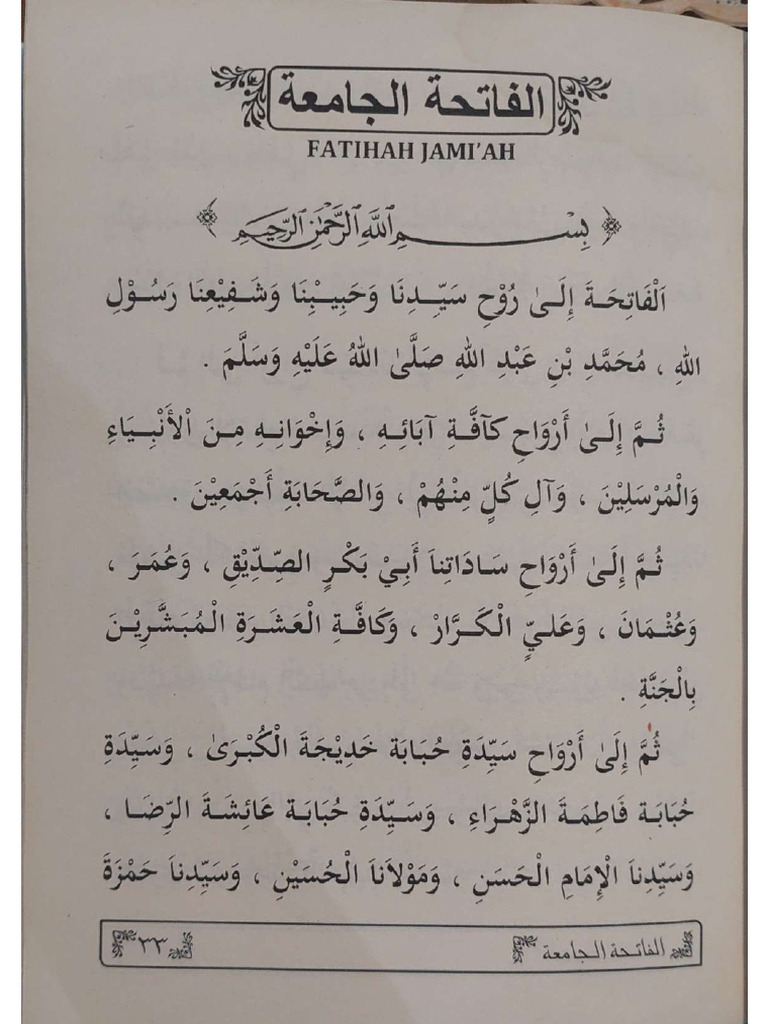 الفاتحة الجامعة
FATIHAH JAMI'AH
بِسْمِ ٱللَّهِ ٱلرَّحْمَٰنِ ٱلرَّحِيمِ
اَلْفَاتِحَةَ إِلَىٰ رُوْحِ سَيِّدِنَا وَحَبِيْبِنَا وَشَفِيْعِنَا رَسُوْلِ
اللهِ ، مُحَمَّدِ بْنِ عَبْدِ اللهِ صَلَّىٰ اللهُ عَلَيْهِ وَسَلَّمَ .
ثُمَّ إِلَىٰ أَرْوَاحِ كَآفَّةِ آبَائِهِ ، وَإِخْوَانِهِ مِنَ الْأَنْبِيَاءِ
وَالْمُرْسَلِيْنَ ، وَآلِ كُلٍّ مِنْهُمْ ، وَالصَّحَابَةِ أَجْمَعِيْنَ .
ثُمَّ إِلَىٰ أَرْوَاحِ سَادَاتِنَا أَبِيْ بَكْرٍ الصِّدِّيْقِ ، وَعُمَرَ ،
وَعُثْمَانَ ، وَعَلِيٍّ الْكَرَّارْ ، وَكَافَّةِ الْعَشَرَةِ الْمُبَشَّرِيْنَ
بِالْجَنَّةِ .
ثُمَّ إِلَىٰ أَرْوَاحِ سَيِّدَةِ حُبَابَة خَدِيْجَةَ الْكُبْرَىٰ ، وَسَيِّدَةِ
حُبَابَة فَاطِمَةَ الزَّهْرَاءِ ، وَسَيِّدَةِ حُبَابَة عَائِشَةَ الرِّضَا ،
وَسَيِّدِنَا الْإِمَامِ الْحَسَنِ ، وَمَوْلَانَا الْحُسَيْنِ ، وَسَيِّدِنَا حَمْزَةَ
الفاتحة الجامعة ٣٣